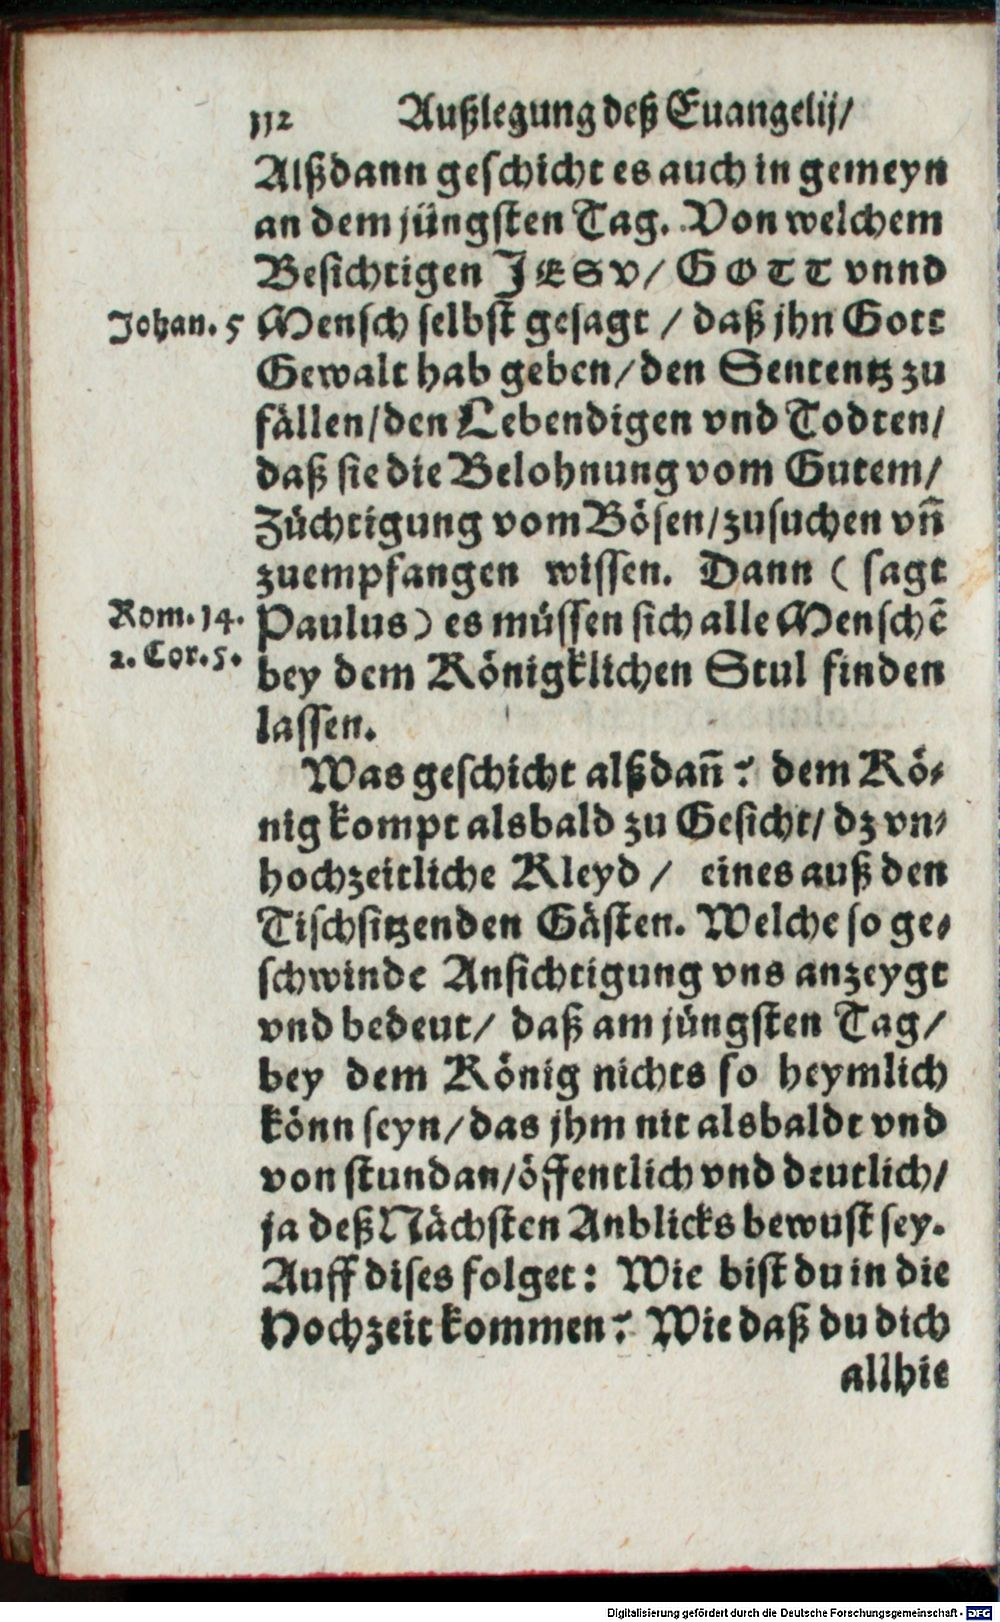 112 Außlegung deß Euangelij/
Alßdann geschicht es auch in gemeyn
an dem jüngsten Tag. Von welchem
Besichtigen JESV/ GOTT vnnd
Johan. 5 Mensch selbst gesagt / daß jhn Gott
Gewalt hab geben/ den Sententz zu
fällen/ den Lebendigen vnd Todten/
daß sie die Belohnung vom Gutem/
Züchtigung vom Bösen/ zusuchen vñ
zuempfangen wissen. Dann ( sagt
Rom. 14. Paulus) es müssen sich alle Menschē
2. Cor. 5. bey dem Königklichen Stul finden
lassen.
Was geschicht alßdañ? dem Kö-
nig kompt alsbald zu Gesicht/ dz vn-
hochzeitliche Kleyd / eines auß den
Tischsitzenden Gästen. Welche so ge-
schwinde Ansichtigung vns anzeygt
vnd bedeut/ daß am jüngsten Tag/
bey dem König nichts so heymlich
könn seyn/ das jhm nit alsbaldt vnd
von stundan/ öffentlich vnd deutlich/
ja deß Nächsten Anblicks bewust sey.
Auff dises folget: Wie bist du in die
Hochzeit kommen? Wie daß du dich
allhie
Digitalisierung gefördert durch die Deutsche Forschungsgemeinschaft - DFG